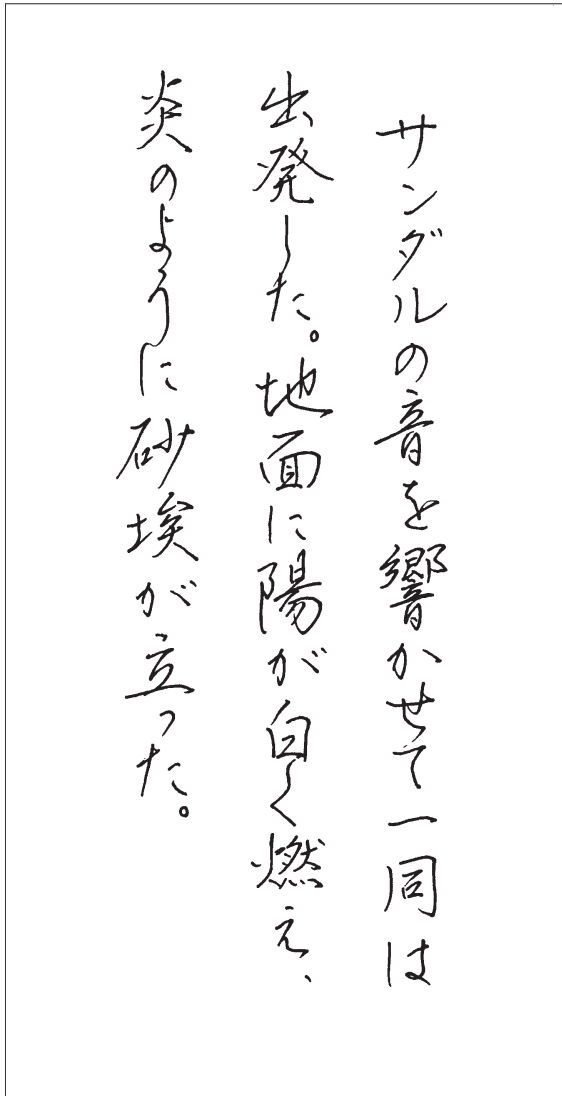 サンダルの音を響かせて一同は
出発した。地面に陽が白く燃え、
炎のように砂埃が立った。